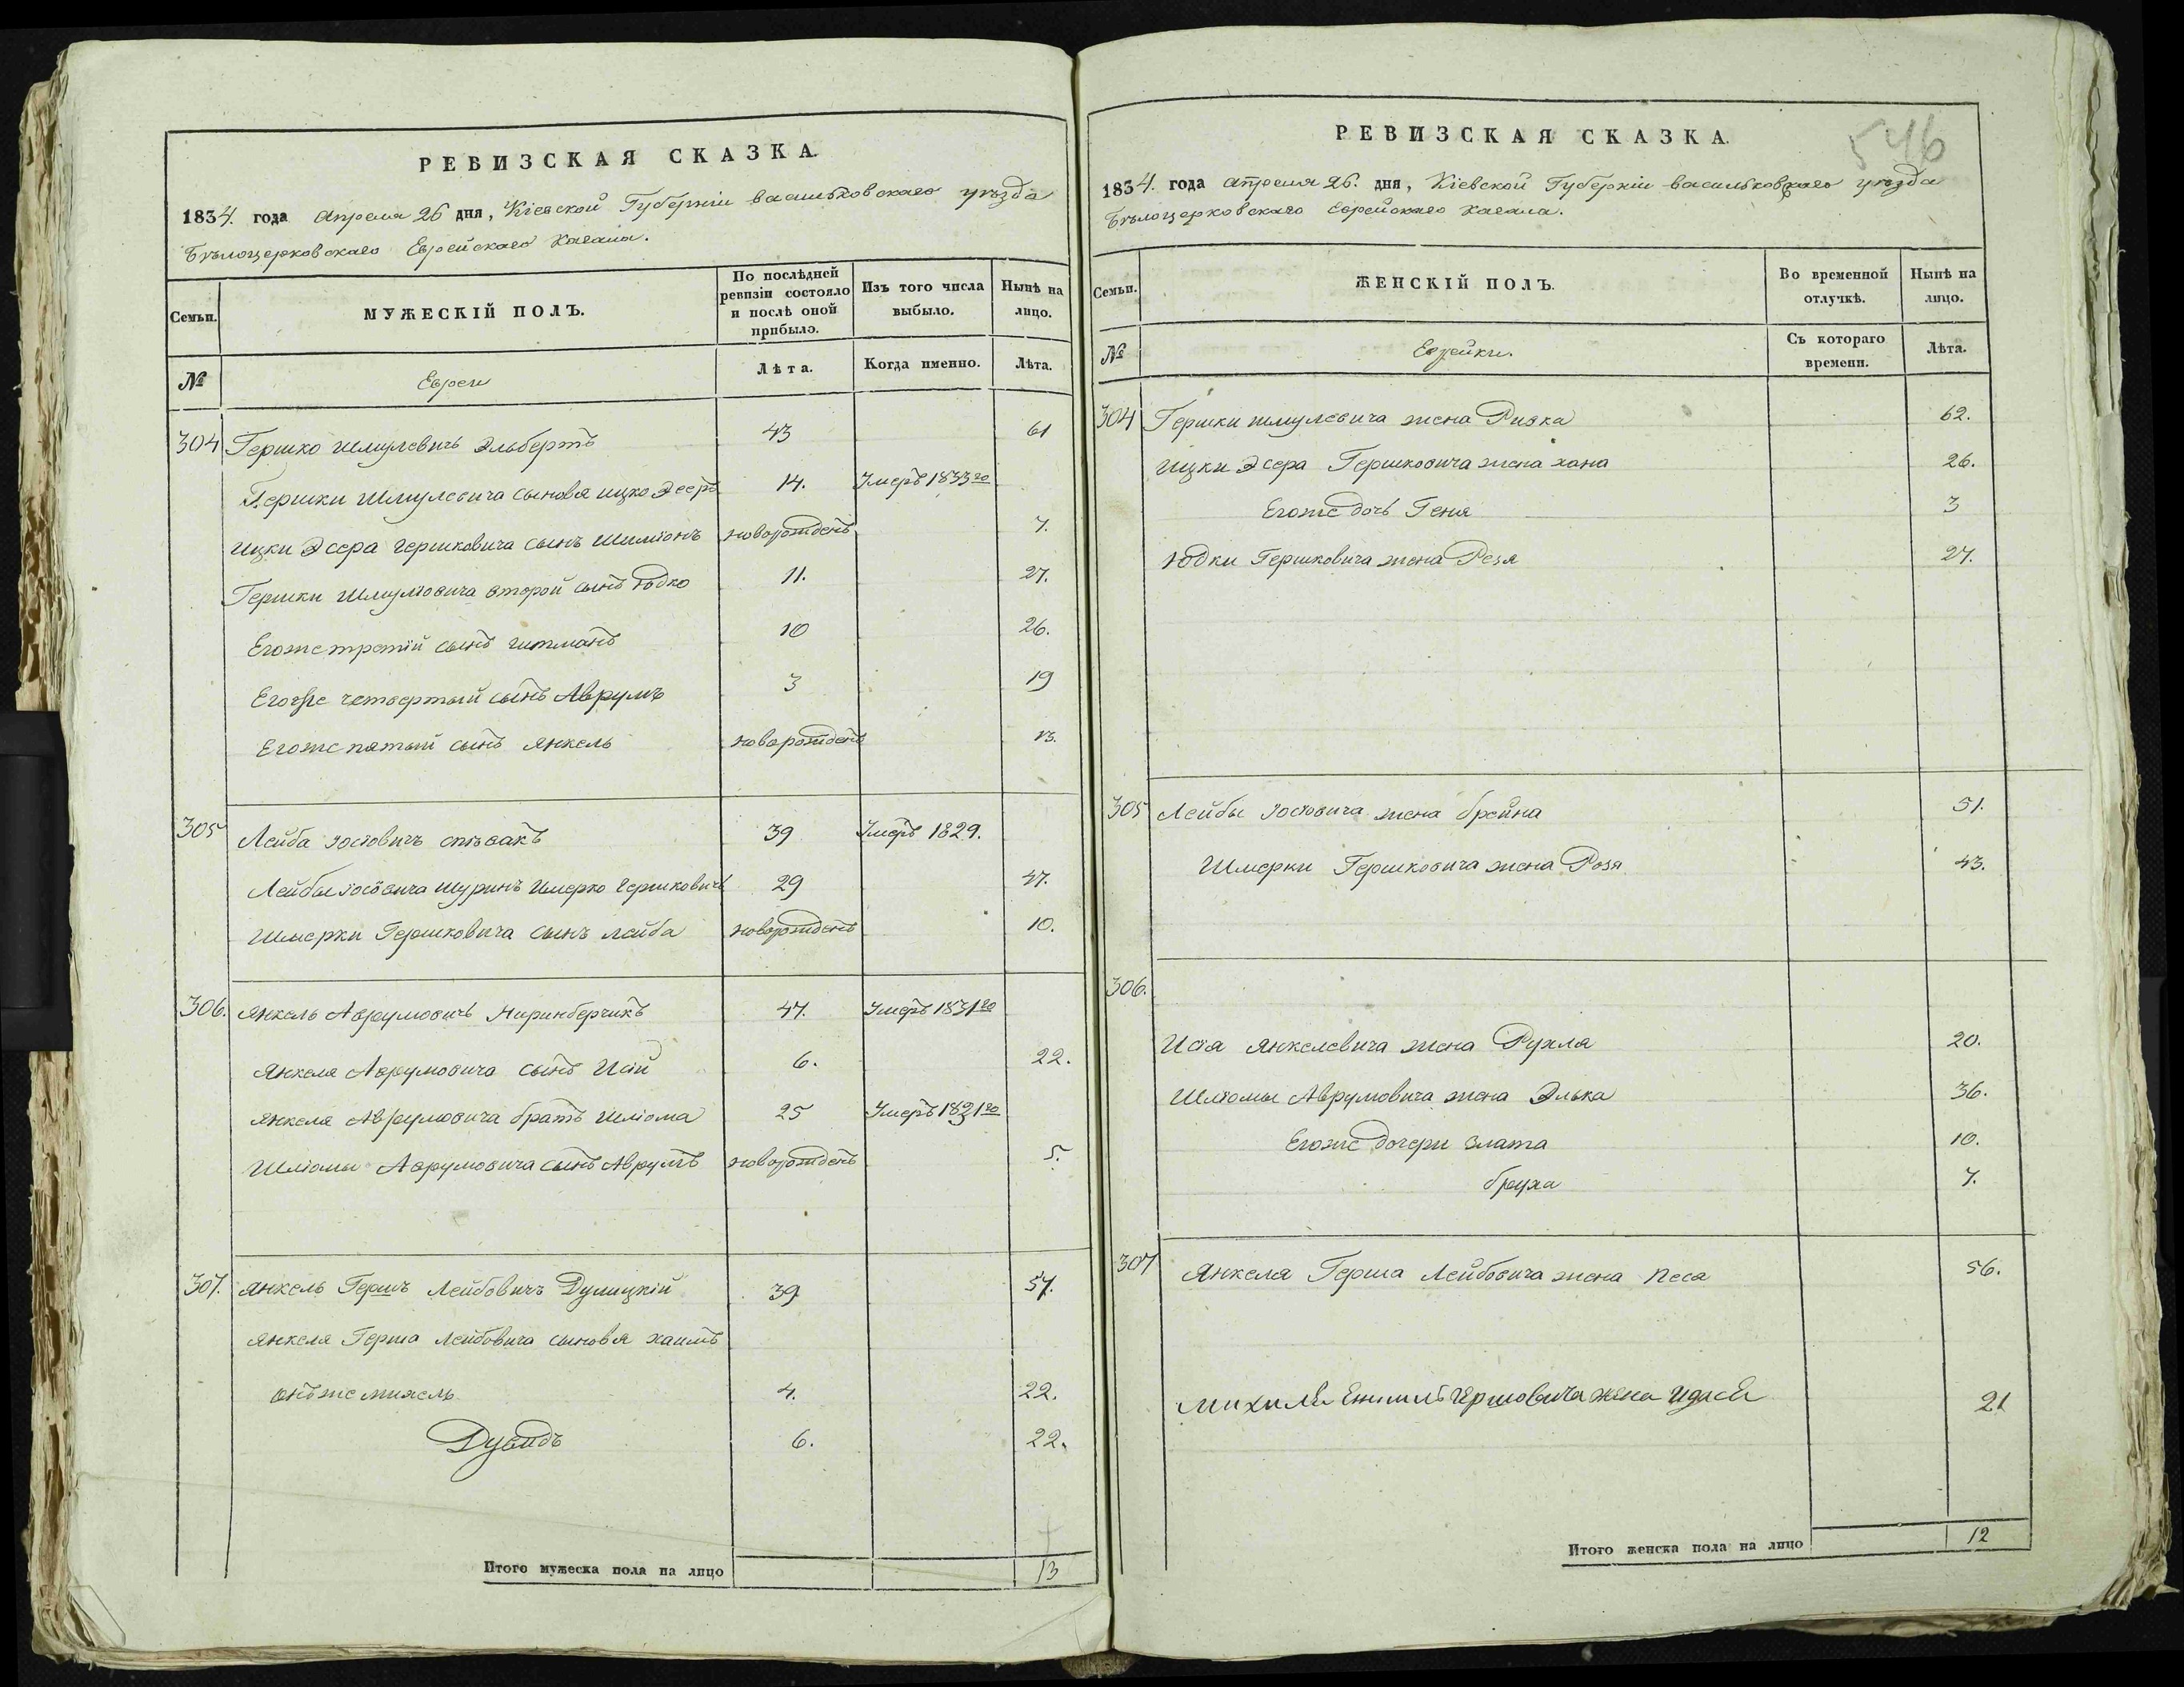 РЕВИЗСКАЯ СКАЗКА.
1834. года Апреля 26 дня, Кіевской Губерніи васильковскаго уѣзда
Бѣлоцерковскаго Еврейскаго Кагала.
Семьи. МУЖЕСКІЙ ПОЛЪ. По послѣдней ревизіи состояло и послѣ оной прибыло. Изъ того числа выбыло. Нынѣ на лицо.
№ Евреи Лѣта. Когда именно. Лѣта.
304 Гершко Шмулевичъ Эльбертъ 43 61
Гершки Шмулевича сыновья ицко Эсеръ 14. Умеръ 1833го
Ицки Эсера Гершковича сынъ Шимонъ новорожденъ 7.
Гершки Шмулiовича второй сынъ Юдко 11. 27.
Егоже третiй сынъ гитманъ 10 26.
Егоже четвертый сынъ Аврумъ 3 19
Егоже пятый сынъ янкель новорожденъ 13.
305 Лейба Іосiовичъ спѣвакъ 39 Умеръ 1829.
Лейбы іосiовича шуринъ Шмерко Гершковичъ 29 47.
Шмерки Гершковича сынъ лейба новорожденъ 10.
306. янкель Аврумовичъ Ниринберчикъ 47. Умеръ 1831го
янкеля Аврумовича сынъ Исiй 6. 22.
янкеля Аврумовича братъ шлiома 25 Умеръ 1831го
Шлiомы Аврумовича сынъ Аврумъ новорожденъ 5.
307. янкель Гершъ Лейбовичъ Дулицкiй 39 57.
янкеля Герша Лейбовича сыновья хаимъ
онъже михель 4. 22.
Дувидъ 6. 22.
Итого мужеска пола на лицо 13
РЕВИЗСКАЯ СКАЗКА.
546
1834. года апреля 26. дня, Кіевской Губерніи васильковскаго уѣзда
Бѣлоцерковскаго Еврейскаго Кагала.
Семьи. ЖЕНСКІЙ ПОЛЪ. Во временной отлучкѣ. Нынѣ на лицо.
№ Еврейки. Съ котораго времени. Лѣта.
304 Гершки шмулевича жена Ривка 62.
Ицки Эсера Гершковича жена хана 26.
Егоже дочь Геня 3
Юдки Гершковича жена Резя 27.
305 Лейбы Іосiовича жена брейна 51.
Шмерки Гершковича жена Розя 43.
306.
Исiя янкелевича жена Рухля 20.
Шлiомы Аврумовича жена Элька 36.
Егоже дочери злата 10.
бруха 7.
307 Янкеля Герша Лейбовича жена песа 56.
михиля Гершовича жена 21
Итого женска пола на лицо 12